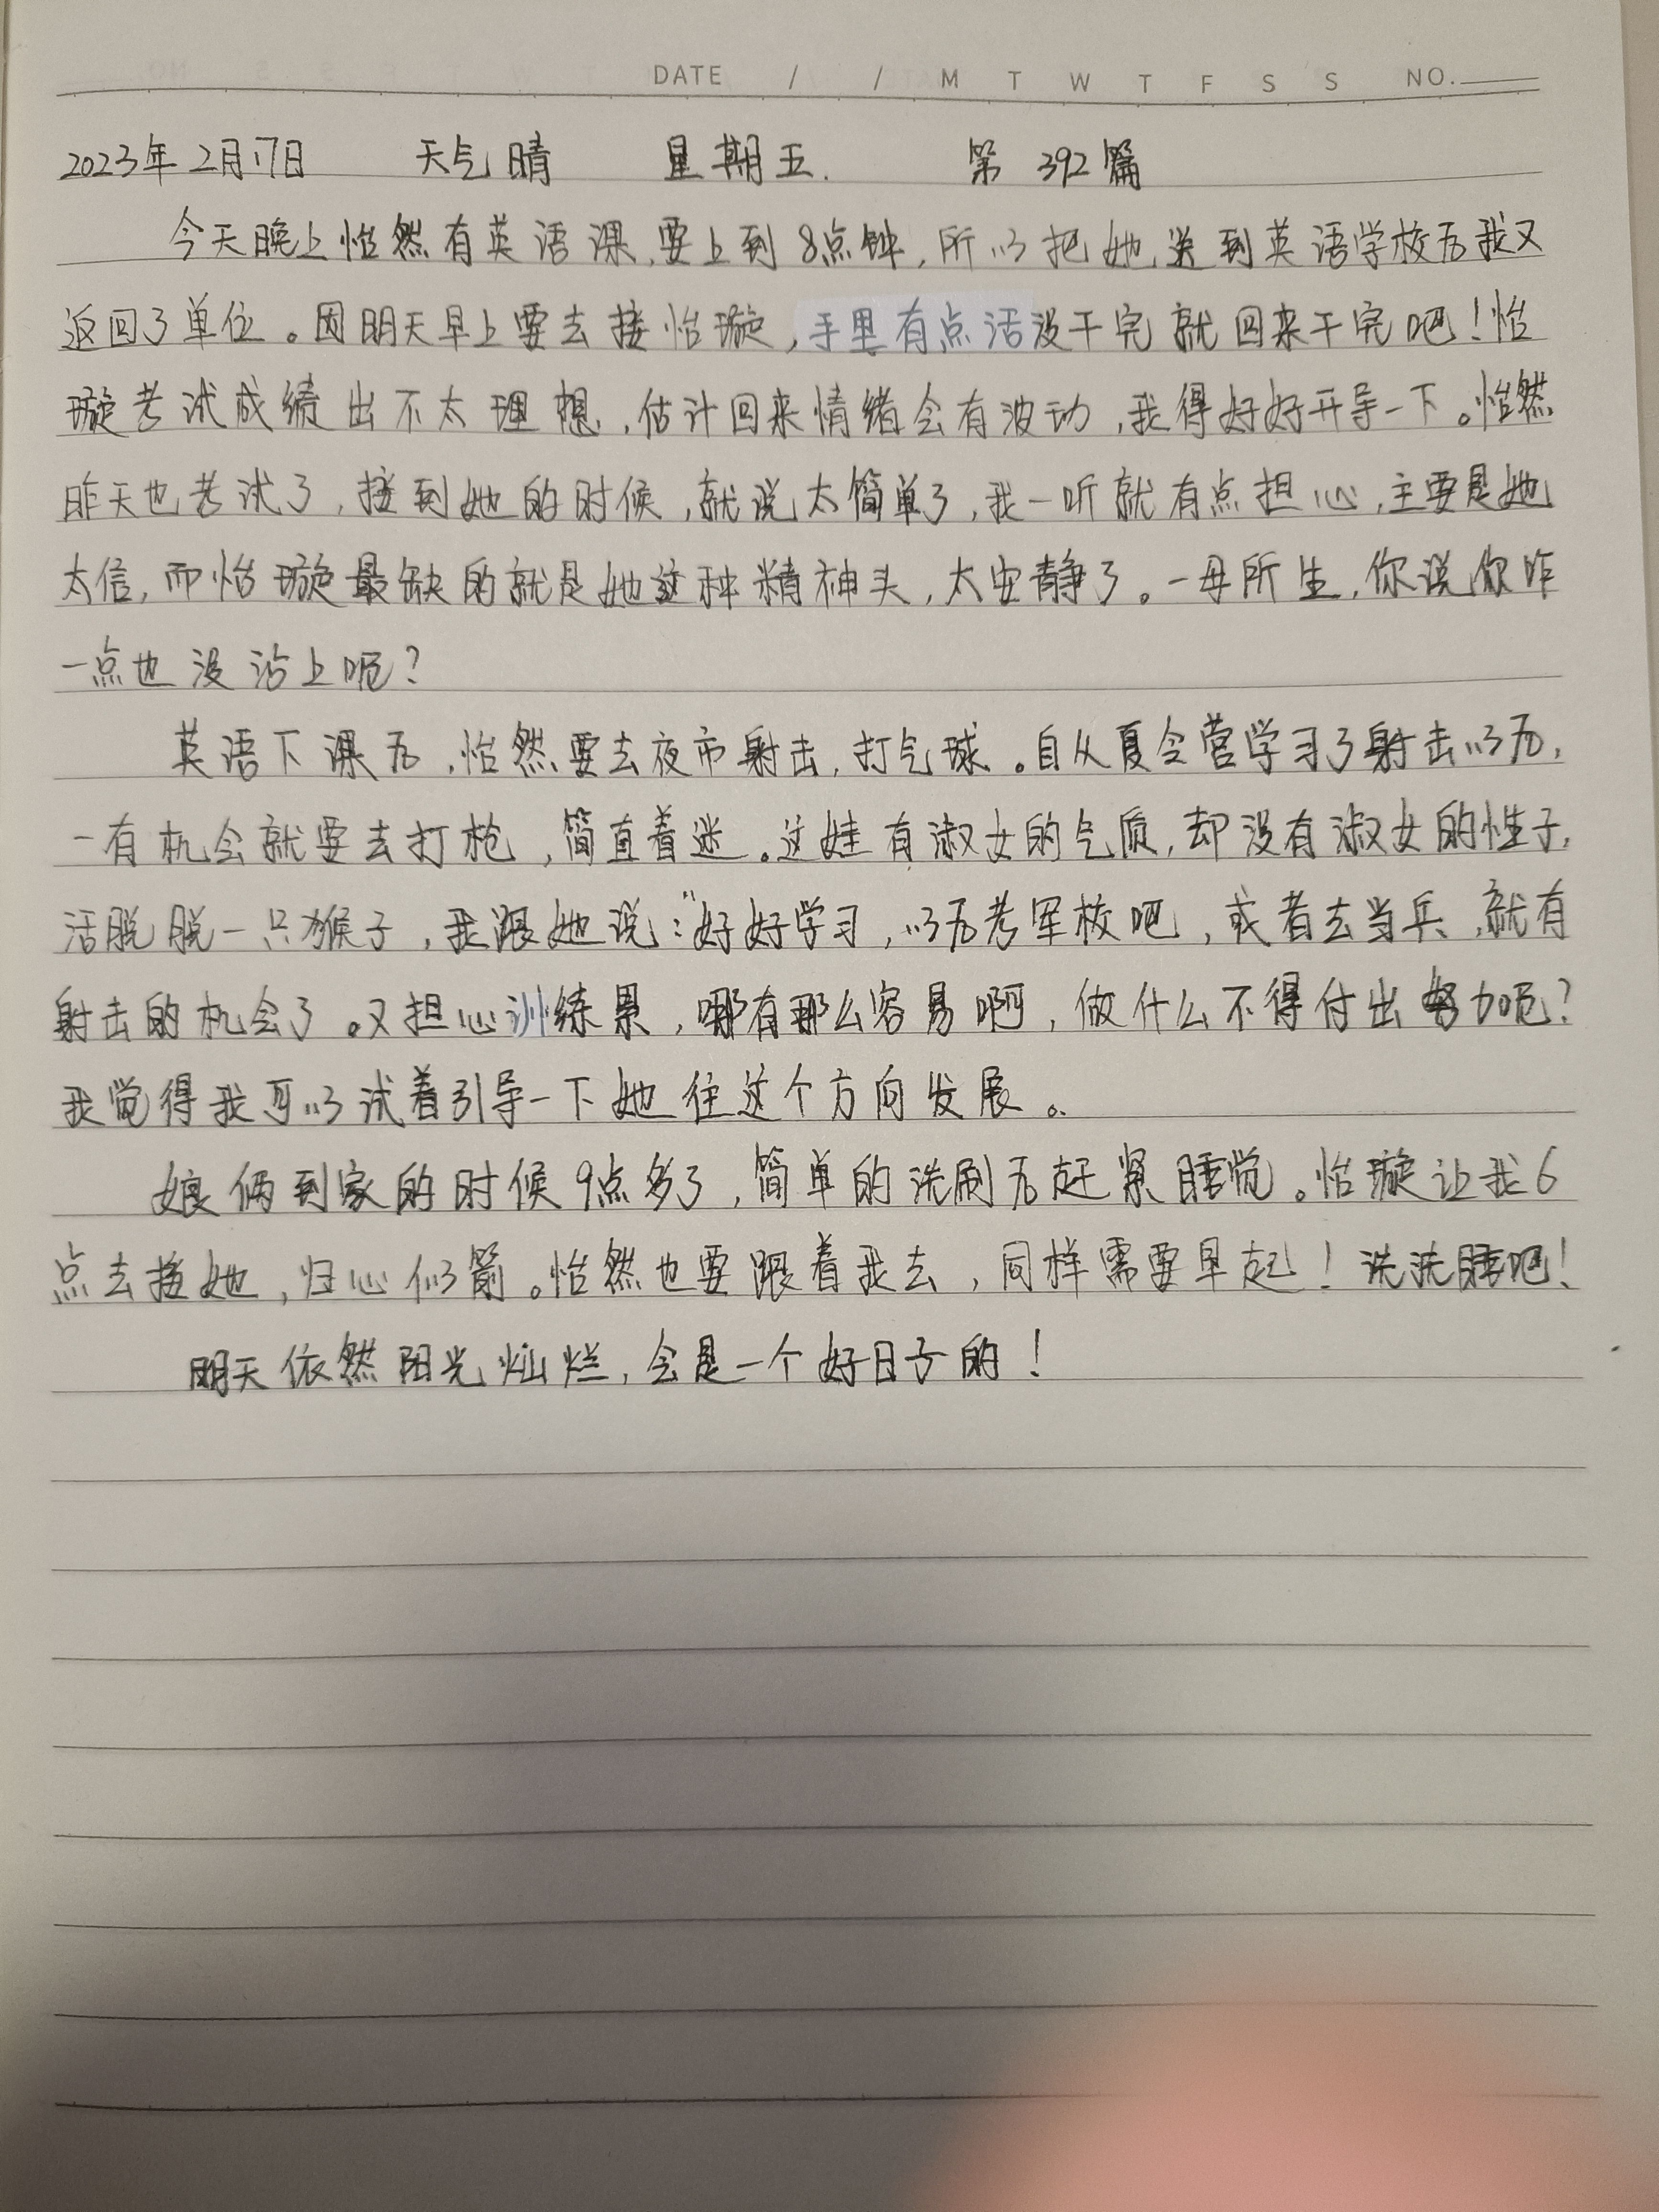 DATE / / M T W T F S S NO.
2023年2月17日 天气晴 星期五. 第392篇
今天晚上怡然有英语课,要上到8点钟,所以把她送到英语学校后我又
返回了单位。因明天早上要去接怡璇,手里有点活没干完就回来干完吧!怡
璇考试成绩出不太理想,估计回来情绪会有波动,我得好好开导一下。怡然
昨天也考试了,接到她的时候,就说太简单了,我一听就有点担心,主要是她
太信,而怡璇最缺的就是她这种精神头,太安静了。一母所生,你说你咋
一点也没沾上呢?
英语下课后,怡然要去夜市射击,打气球。自从夏令营学习了射击以后,
一有机会就要去打枪,简直着迷。这娃有淑女的气质,却没有淑女的性子,
活脱脱一只猴子,我跟她说:“好好学习,以后考军校吧,或者去当兵,就有
射击的机会了。又担心训练累,哪有那么容易啊,做什么不得付出努力呢?
我觉得我可以试着引导一下她往这个方向发展。
娘俩到家的时候9点多了,简单的洗刷后赶紧睡觉。怡璇让我6
点去接她,归心似箭。怡然也要跟着我去,同样需要早起!洗洗睡吧!
明天依然阳光灿烂,会是一个好日子的!